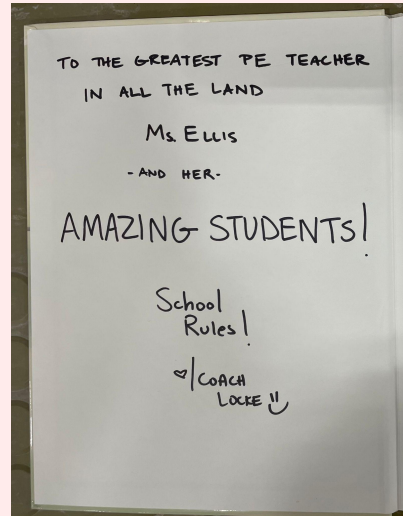 TO THE GREATEST PE TEACHER
IN ALL THE LAND
Ms. ELLIS
- AND HER -
AMAZING STUDENTS!
School
Rules!
♡/COACH
LOCKE !!